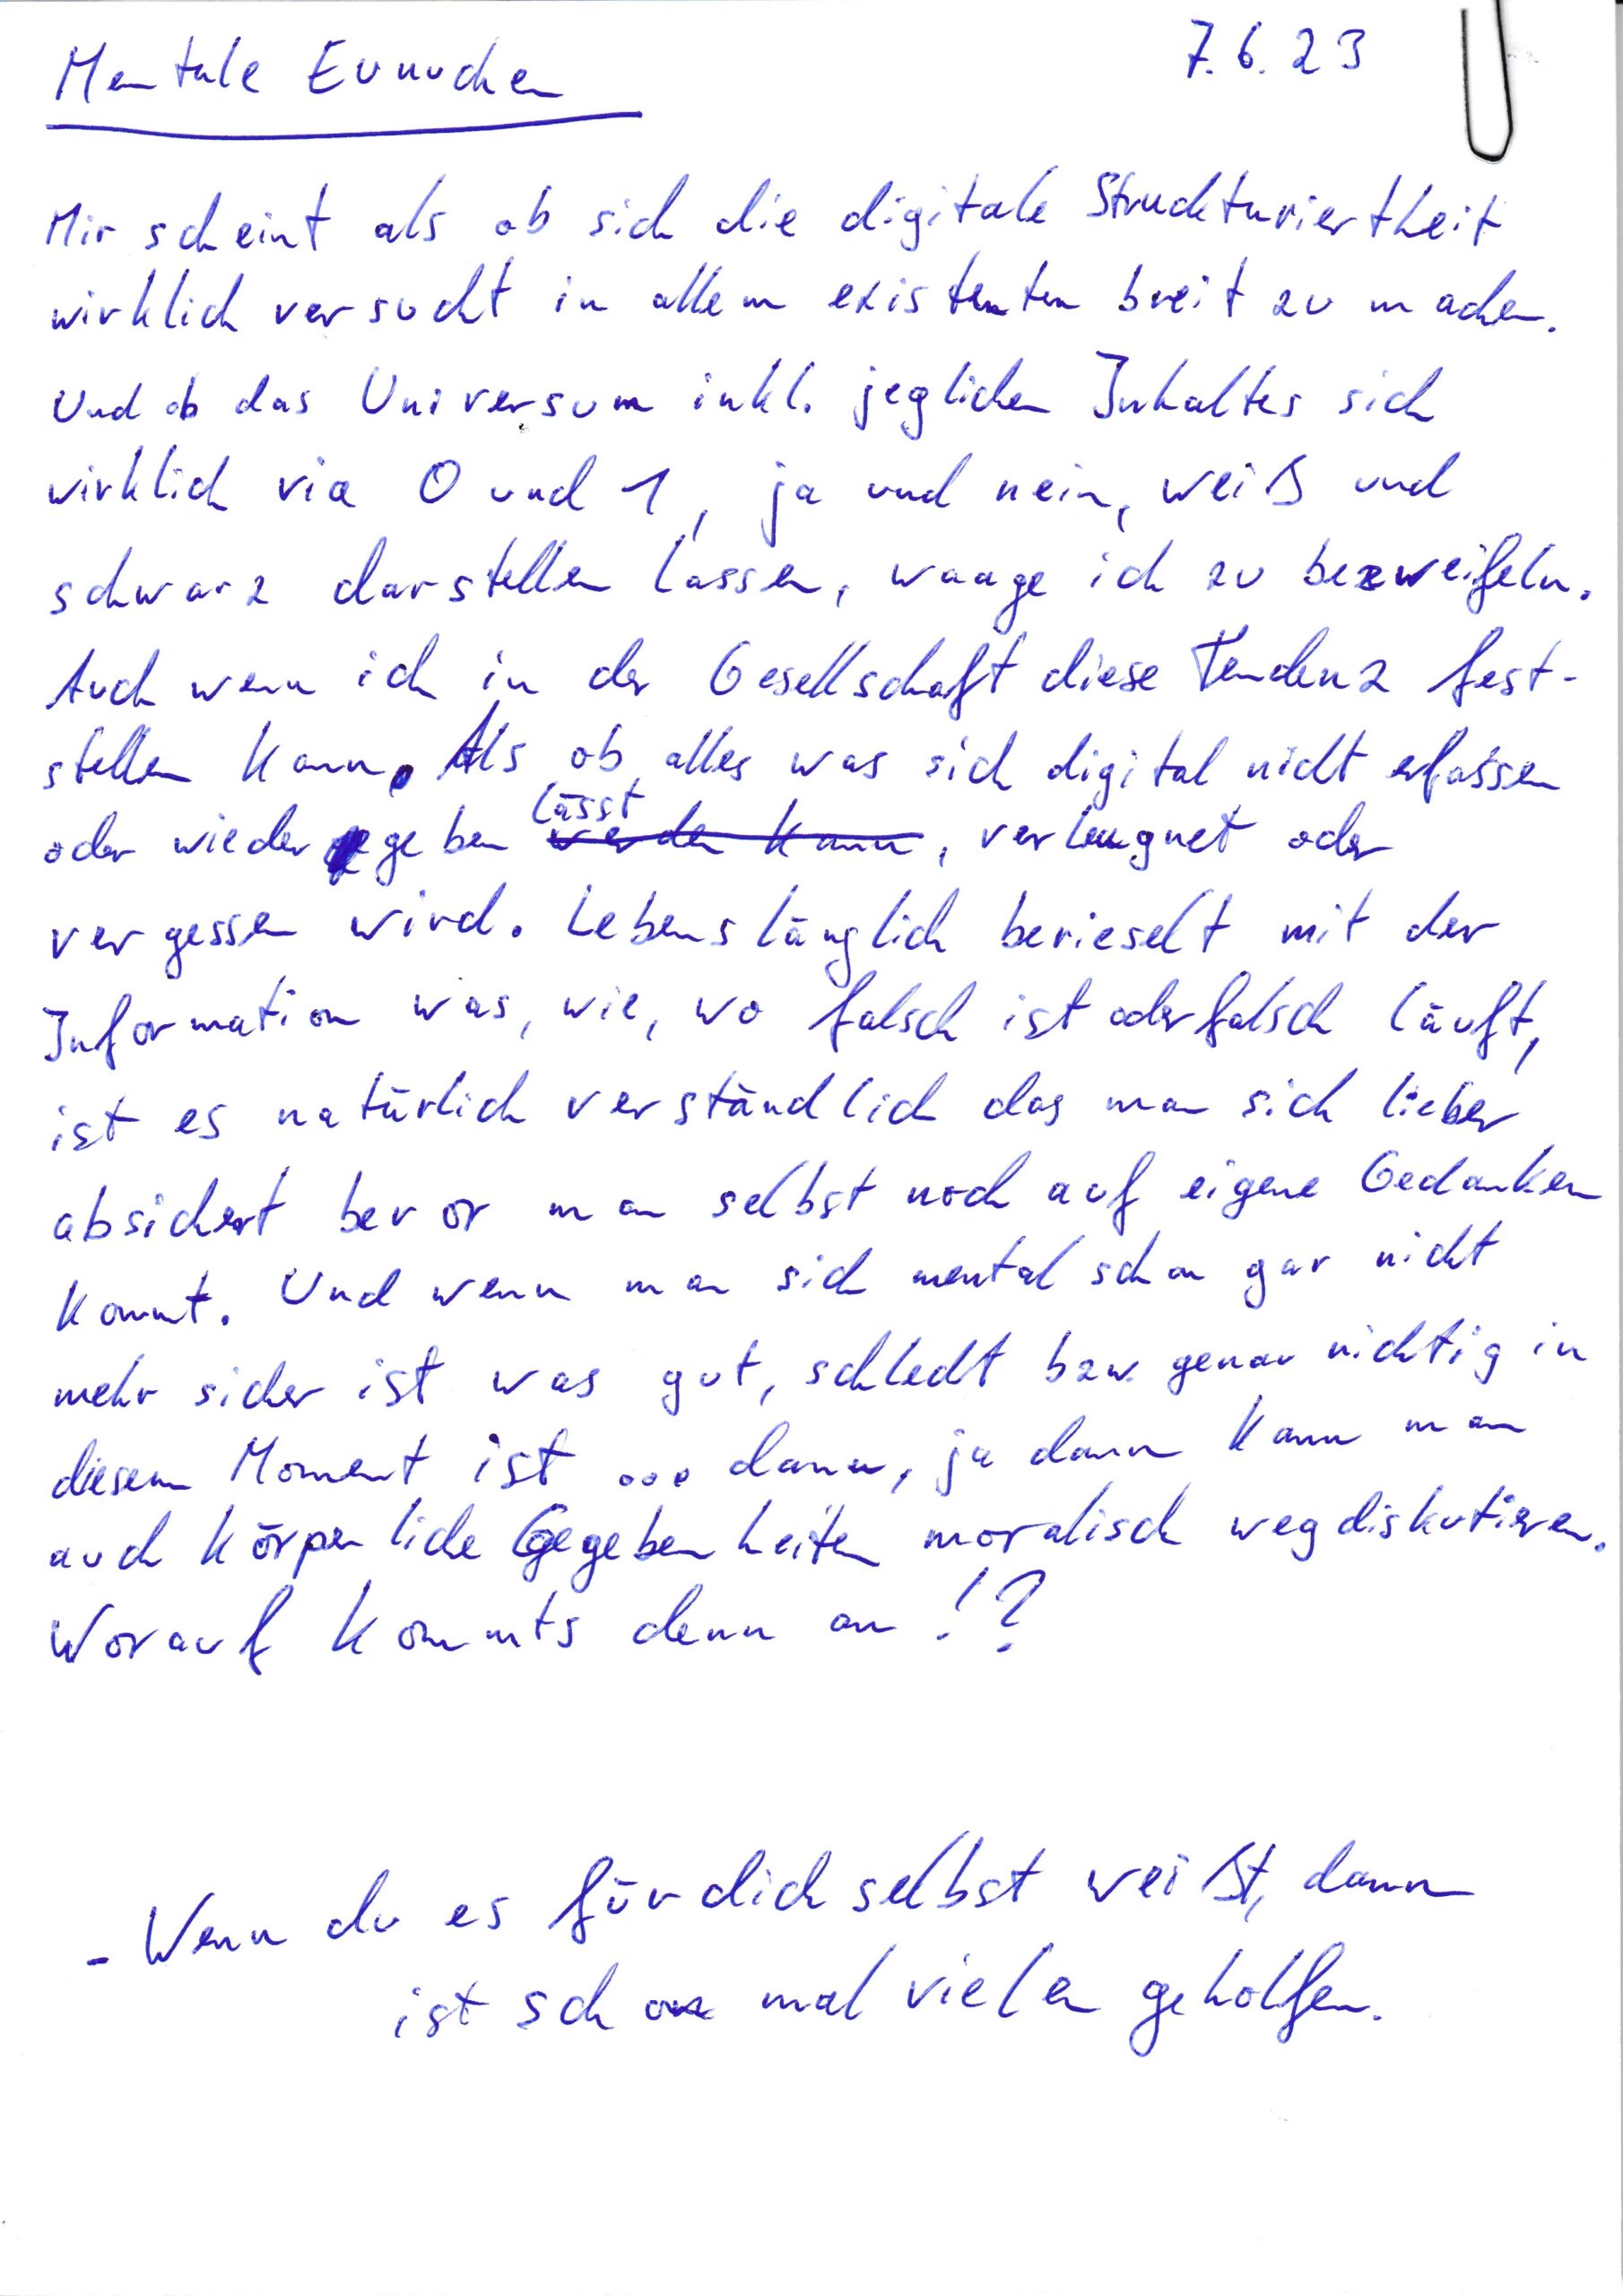 Mentale Eunuchen 7.6.23
Mir scheint als ob sich die digitale Struckturiertheit
wirklich versucht in allem existenten breit zu machen.
Und ob das Universum inkl. jeglichen Inhaltes sich
wirklich via 0 und 1, ja und nein, weiß und
schwarz darstellen lassen, waage ich zu bezweifeln.
Auch wenn ich in der Gesellschaft diese Tendenz fest-
stellen kann. Als ob alles was sich digital nicht erfassen
oder wiedergeben lässt werden kann, verleugnet oder
vergessen wird. Lebenslänglich berieselt mit der
Information was, wie, wo falsch ist oder falsch läuft,
ist es natürlich verständlich das man sich lieber
absichert bevor man selbst noch auf eigene Gedanken
kommt. Und wenn man sich mental schon gar nicht
mehr sicher ist was gut, schlecht bzw. genau nichtig in
diesem Moment ist ... dann, ja dann kann man
auch körperliche Gegebenheiten moralisch wegdiskutieren.
Worauf kommts denn an!?
- Wenn du es für dich selbst weißt, dann
ist schon mal vielen geholfen.